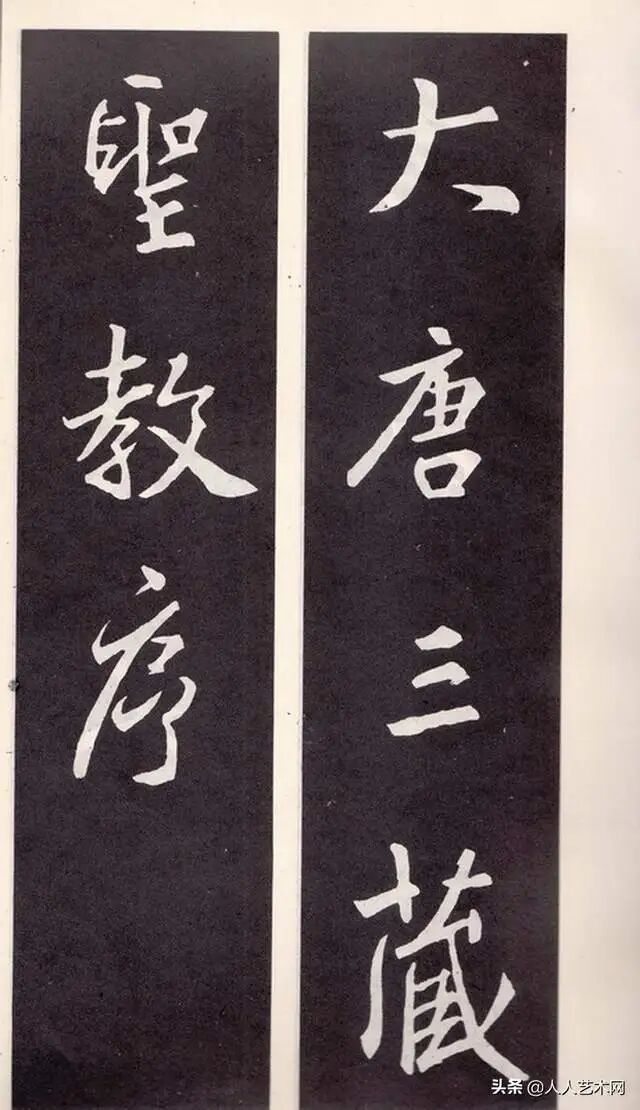 大唐三藏
聖教序
头条 @人人艺术网